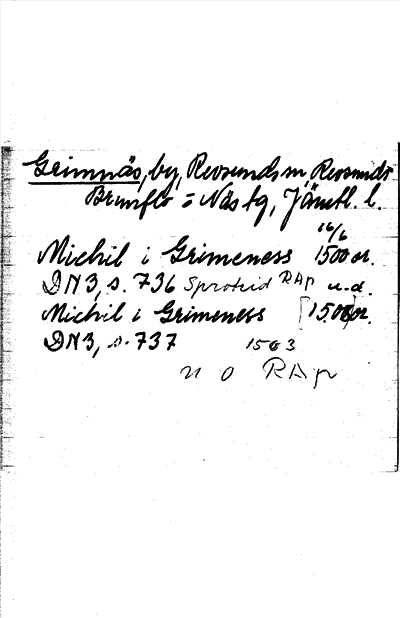 Grimnäs, by, Revsunds sn, Revsunds
Brunflo = Näs tg, Jämtl. l.
16/6
Michil i Grimeness 1500 or.
DN 3, s. 736 Sproteid RAp u.d.
Michil i Grimeness [1500] or.
DN 3, s. 737 1503
u o RAp